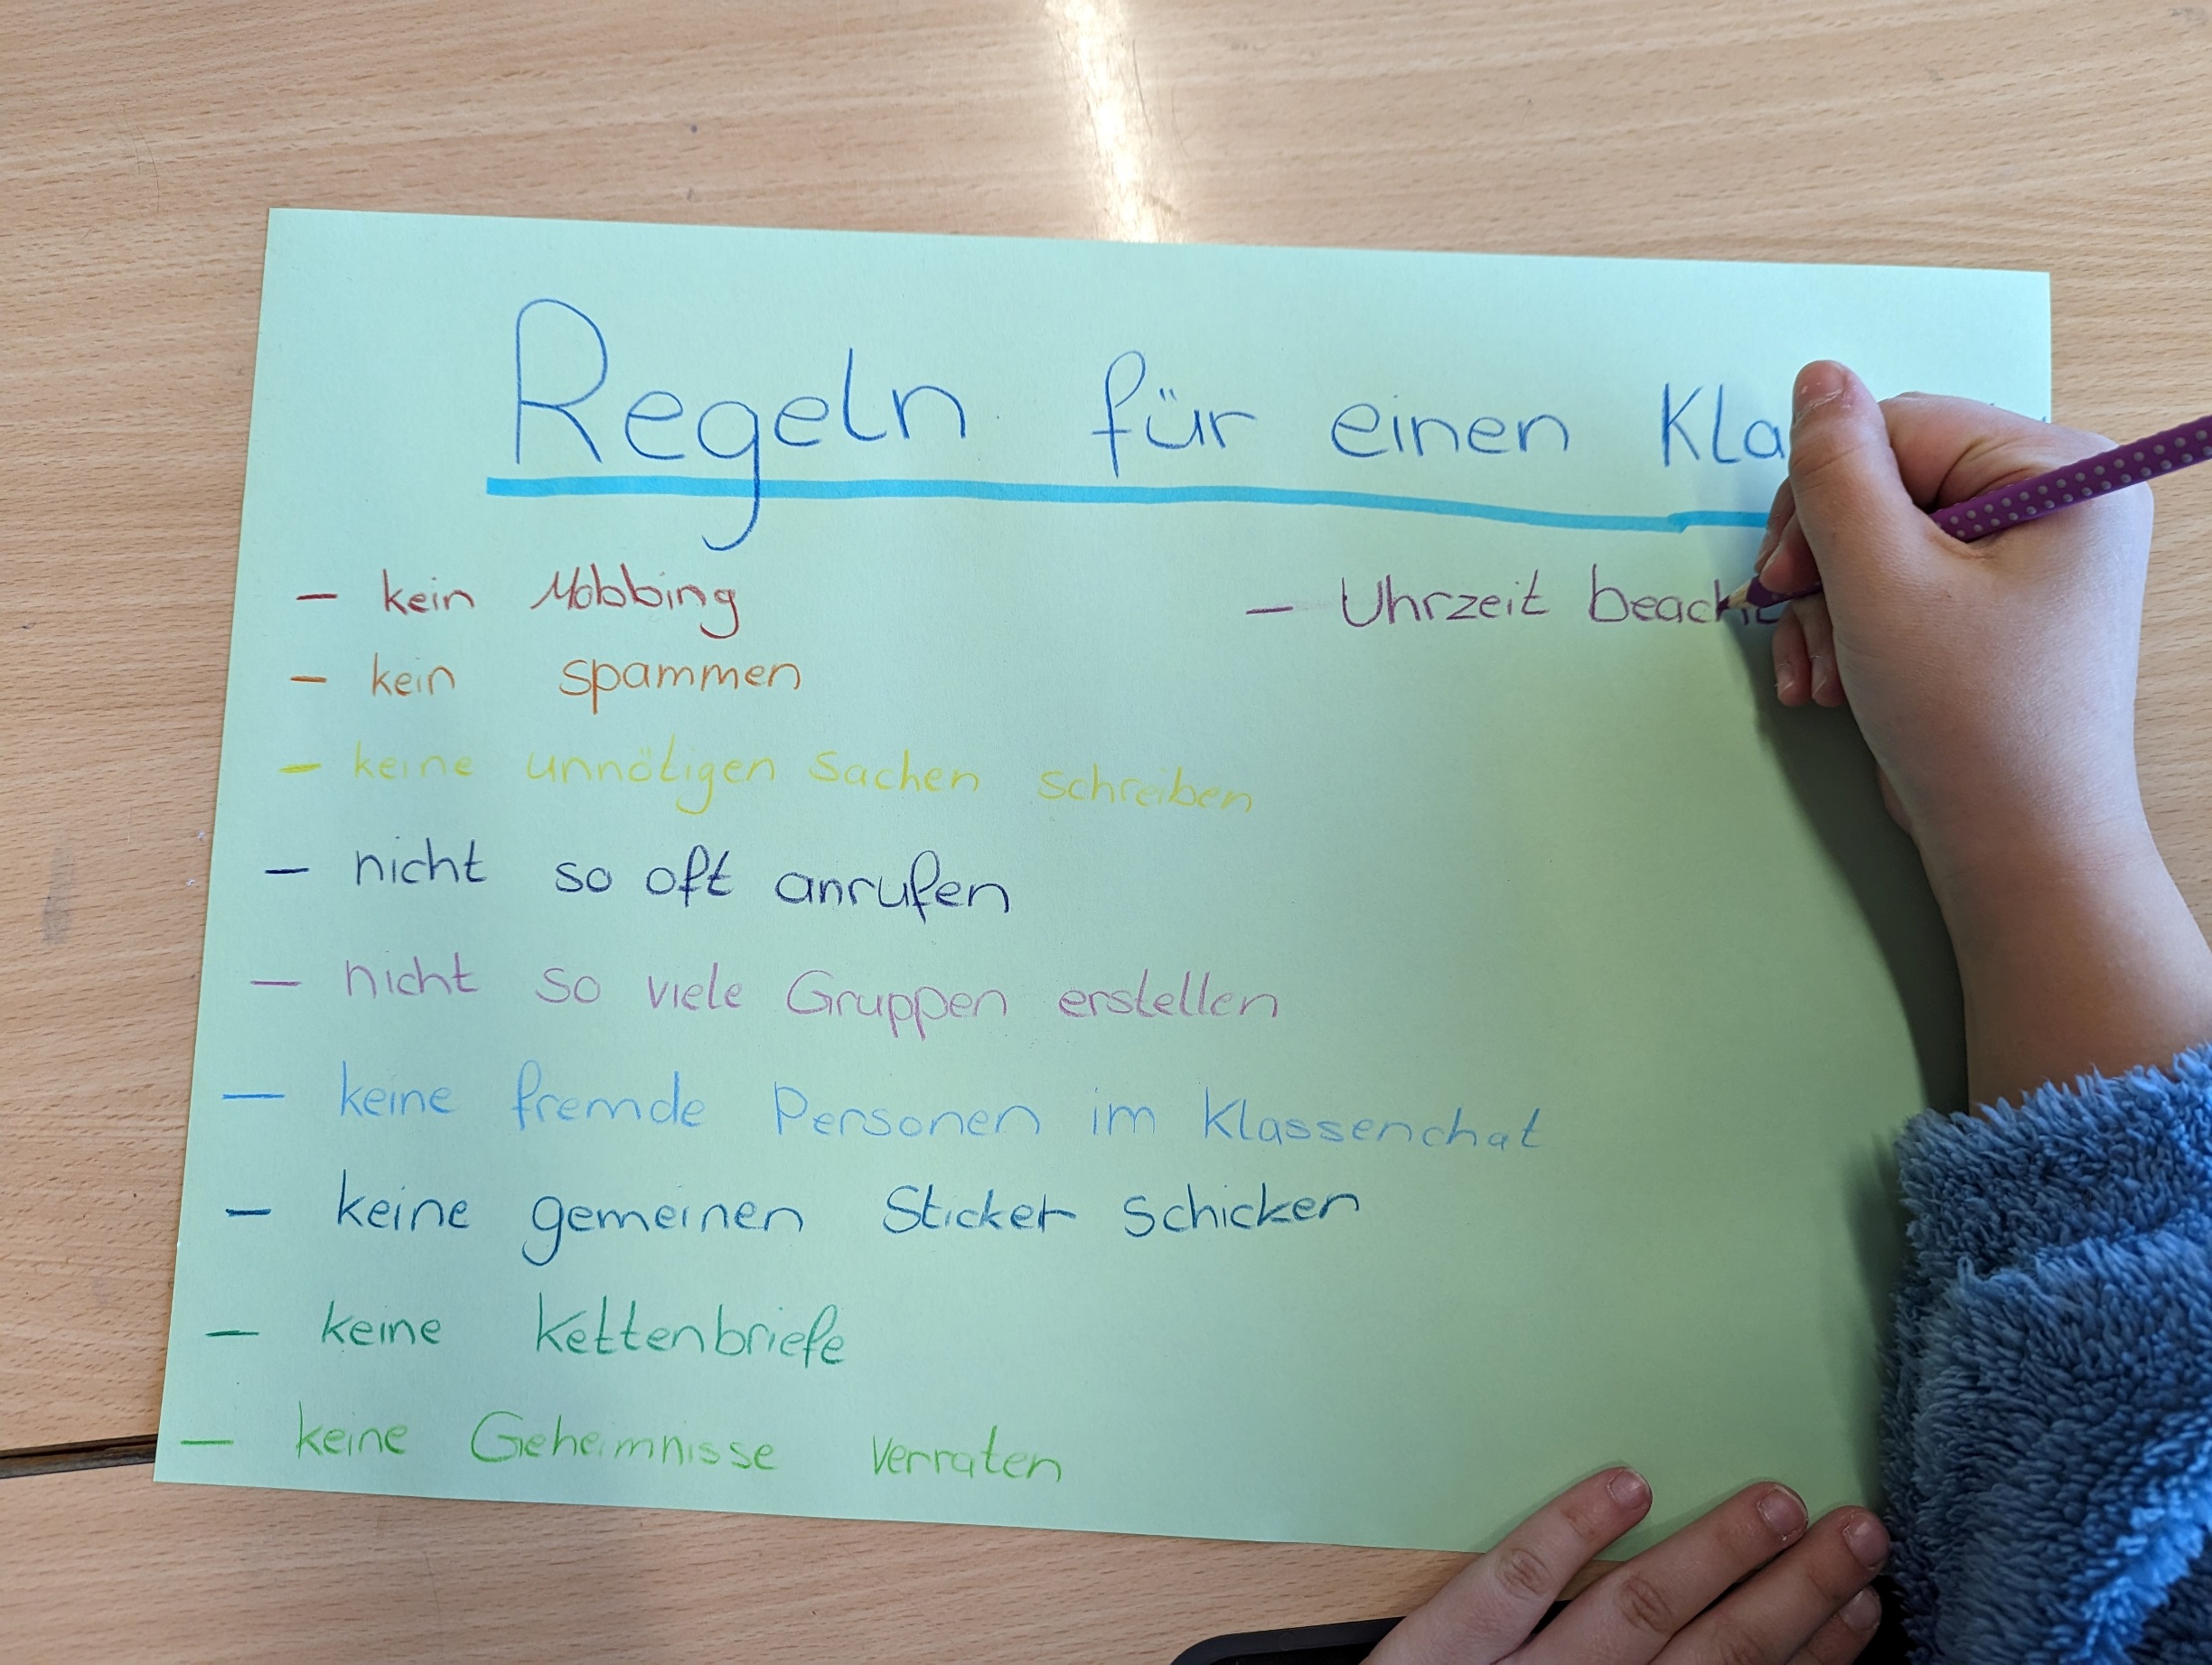 Regeln für einen Kla
- kein Mobbing
- kein spammen
- keine unnötigen Sachen schreiben
- nicht so oft anrufen
- nicht so viele Gruppen erstellen
- keine fremde Personen im Klassenchat
- keine gemeinen Sticker schicken
- keine Kettenbriefe
- keine Geheimnisse verraten
- Uhrzeit beach